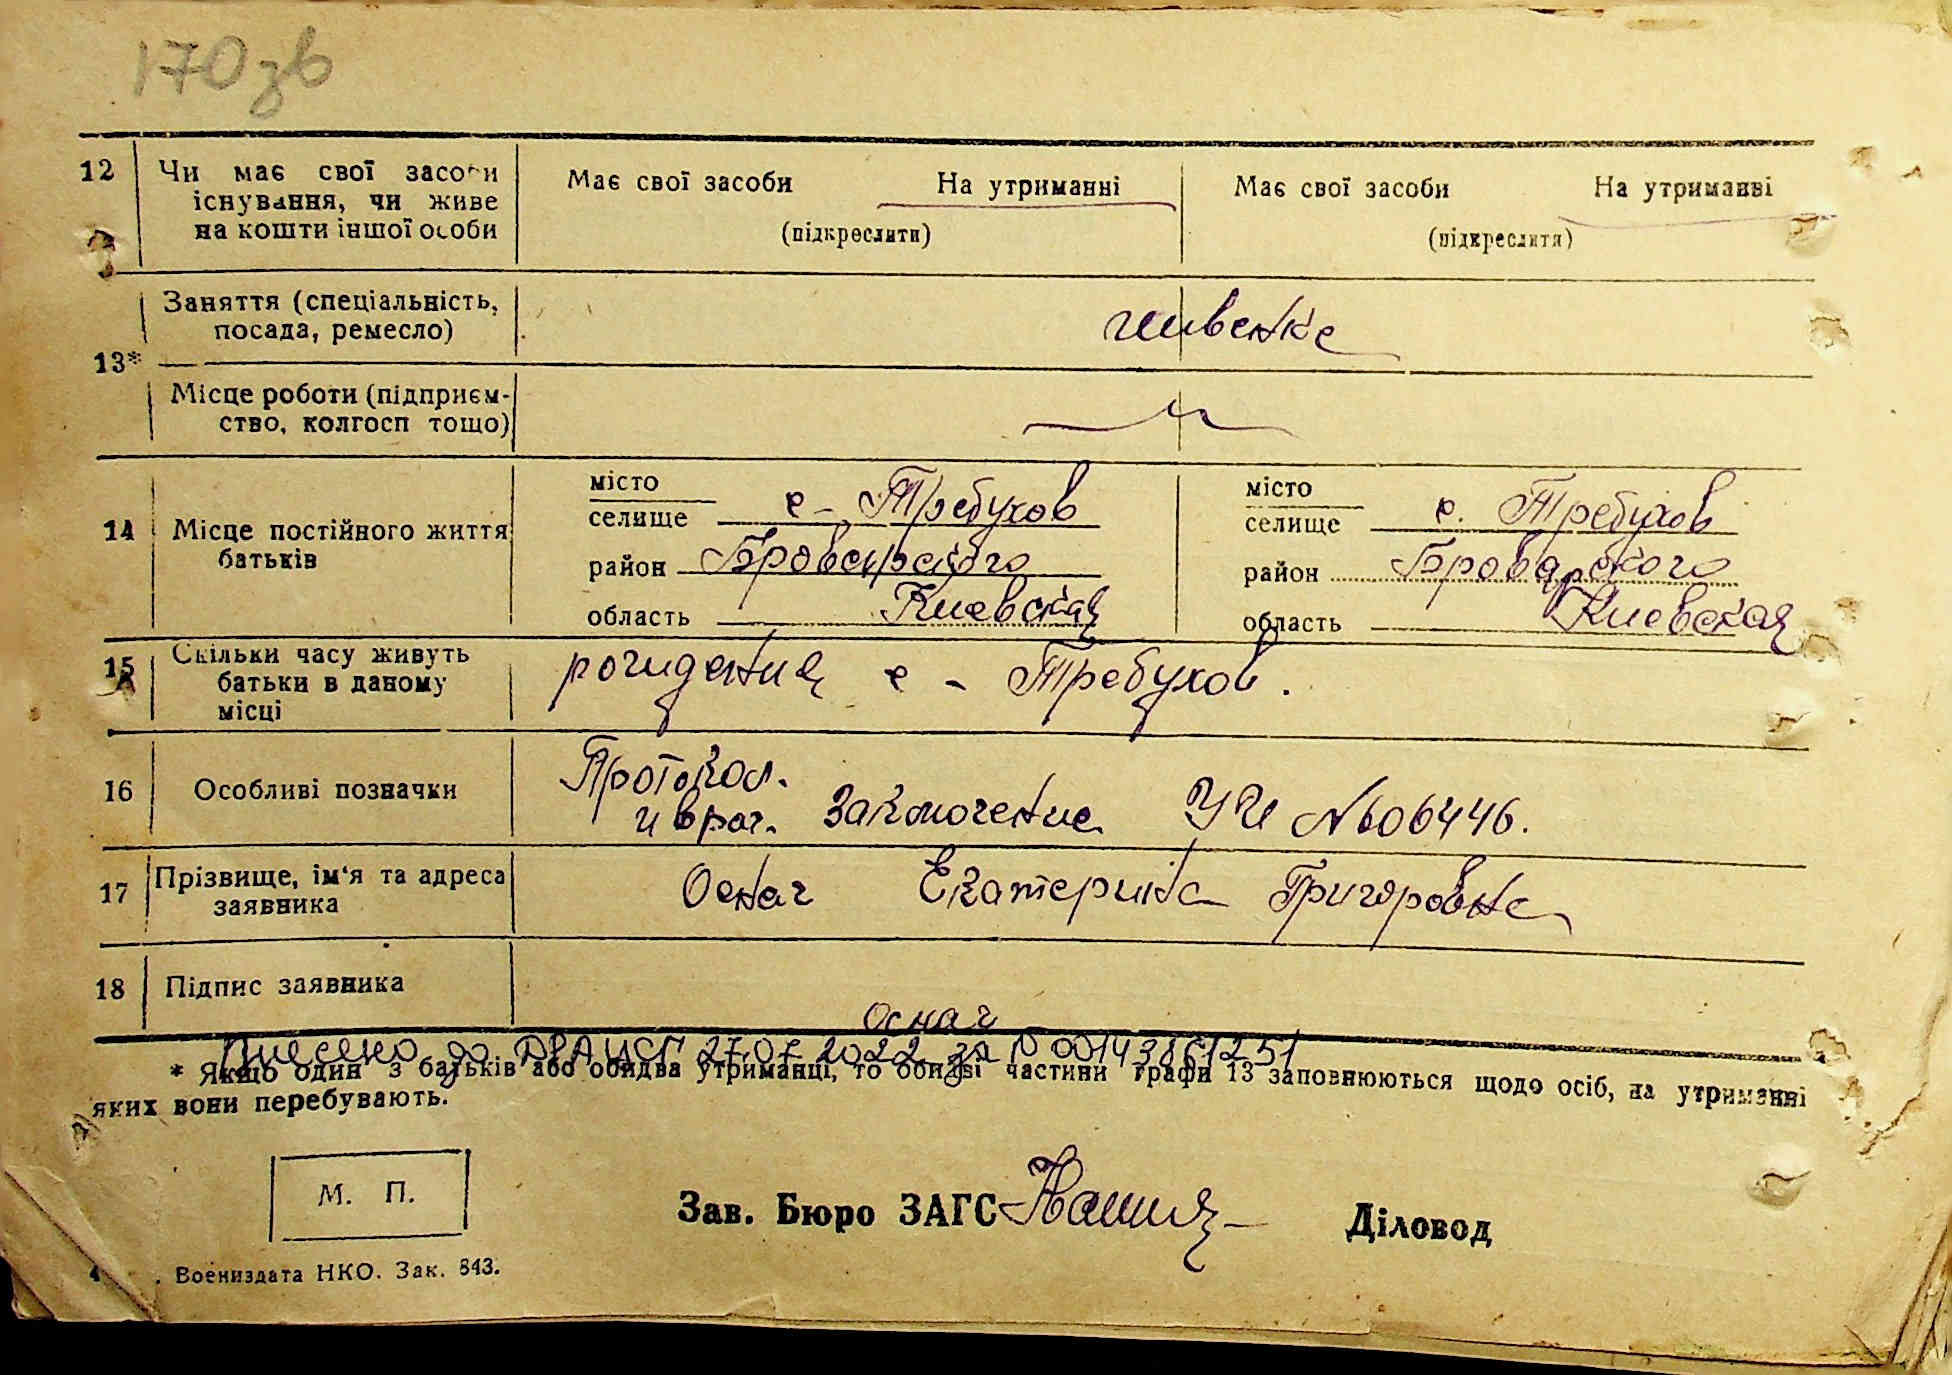 170 зв
12 Чи має свої засоби Має свої засоби На утриманні Має свої засоби На утриманні
існування, чи живе
на кошти іншої особи (підкреслити) (підкреслити)
Заняття (спеціальність,
посада, ремесло)
13*
Місце роботи (підприєм-
ство, колгосп тощо)
місто місто
селище с - Требухов селище с. Требухов
14 Місце постійного життя
батьків район Броварского район Броварского
область Киевская область Киевская
15 Скільки часу живуть рождения с - Требухов.
батьки в даному
місці
Протокол.
16 Особливі позначки и врач. Заключение УЧ №606446.
17 Прізвище, ім'я та адреса Оснач Екатерина Григоровна
заявника
18 Підпис заявника
Оснач
Внесено до ДРАЦСГ 27.07.2022 за № 00143861251
* Якщо один з батьків або обидва утриманці, то обидві частини графи 13 заповнюються щодо осіб, на утриманні
яких вони перебувають.
М. П.
Зав. Бюро ЗАГС Діловод
4 . Воениздата НКО. Зак. 843.